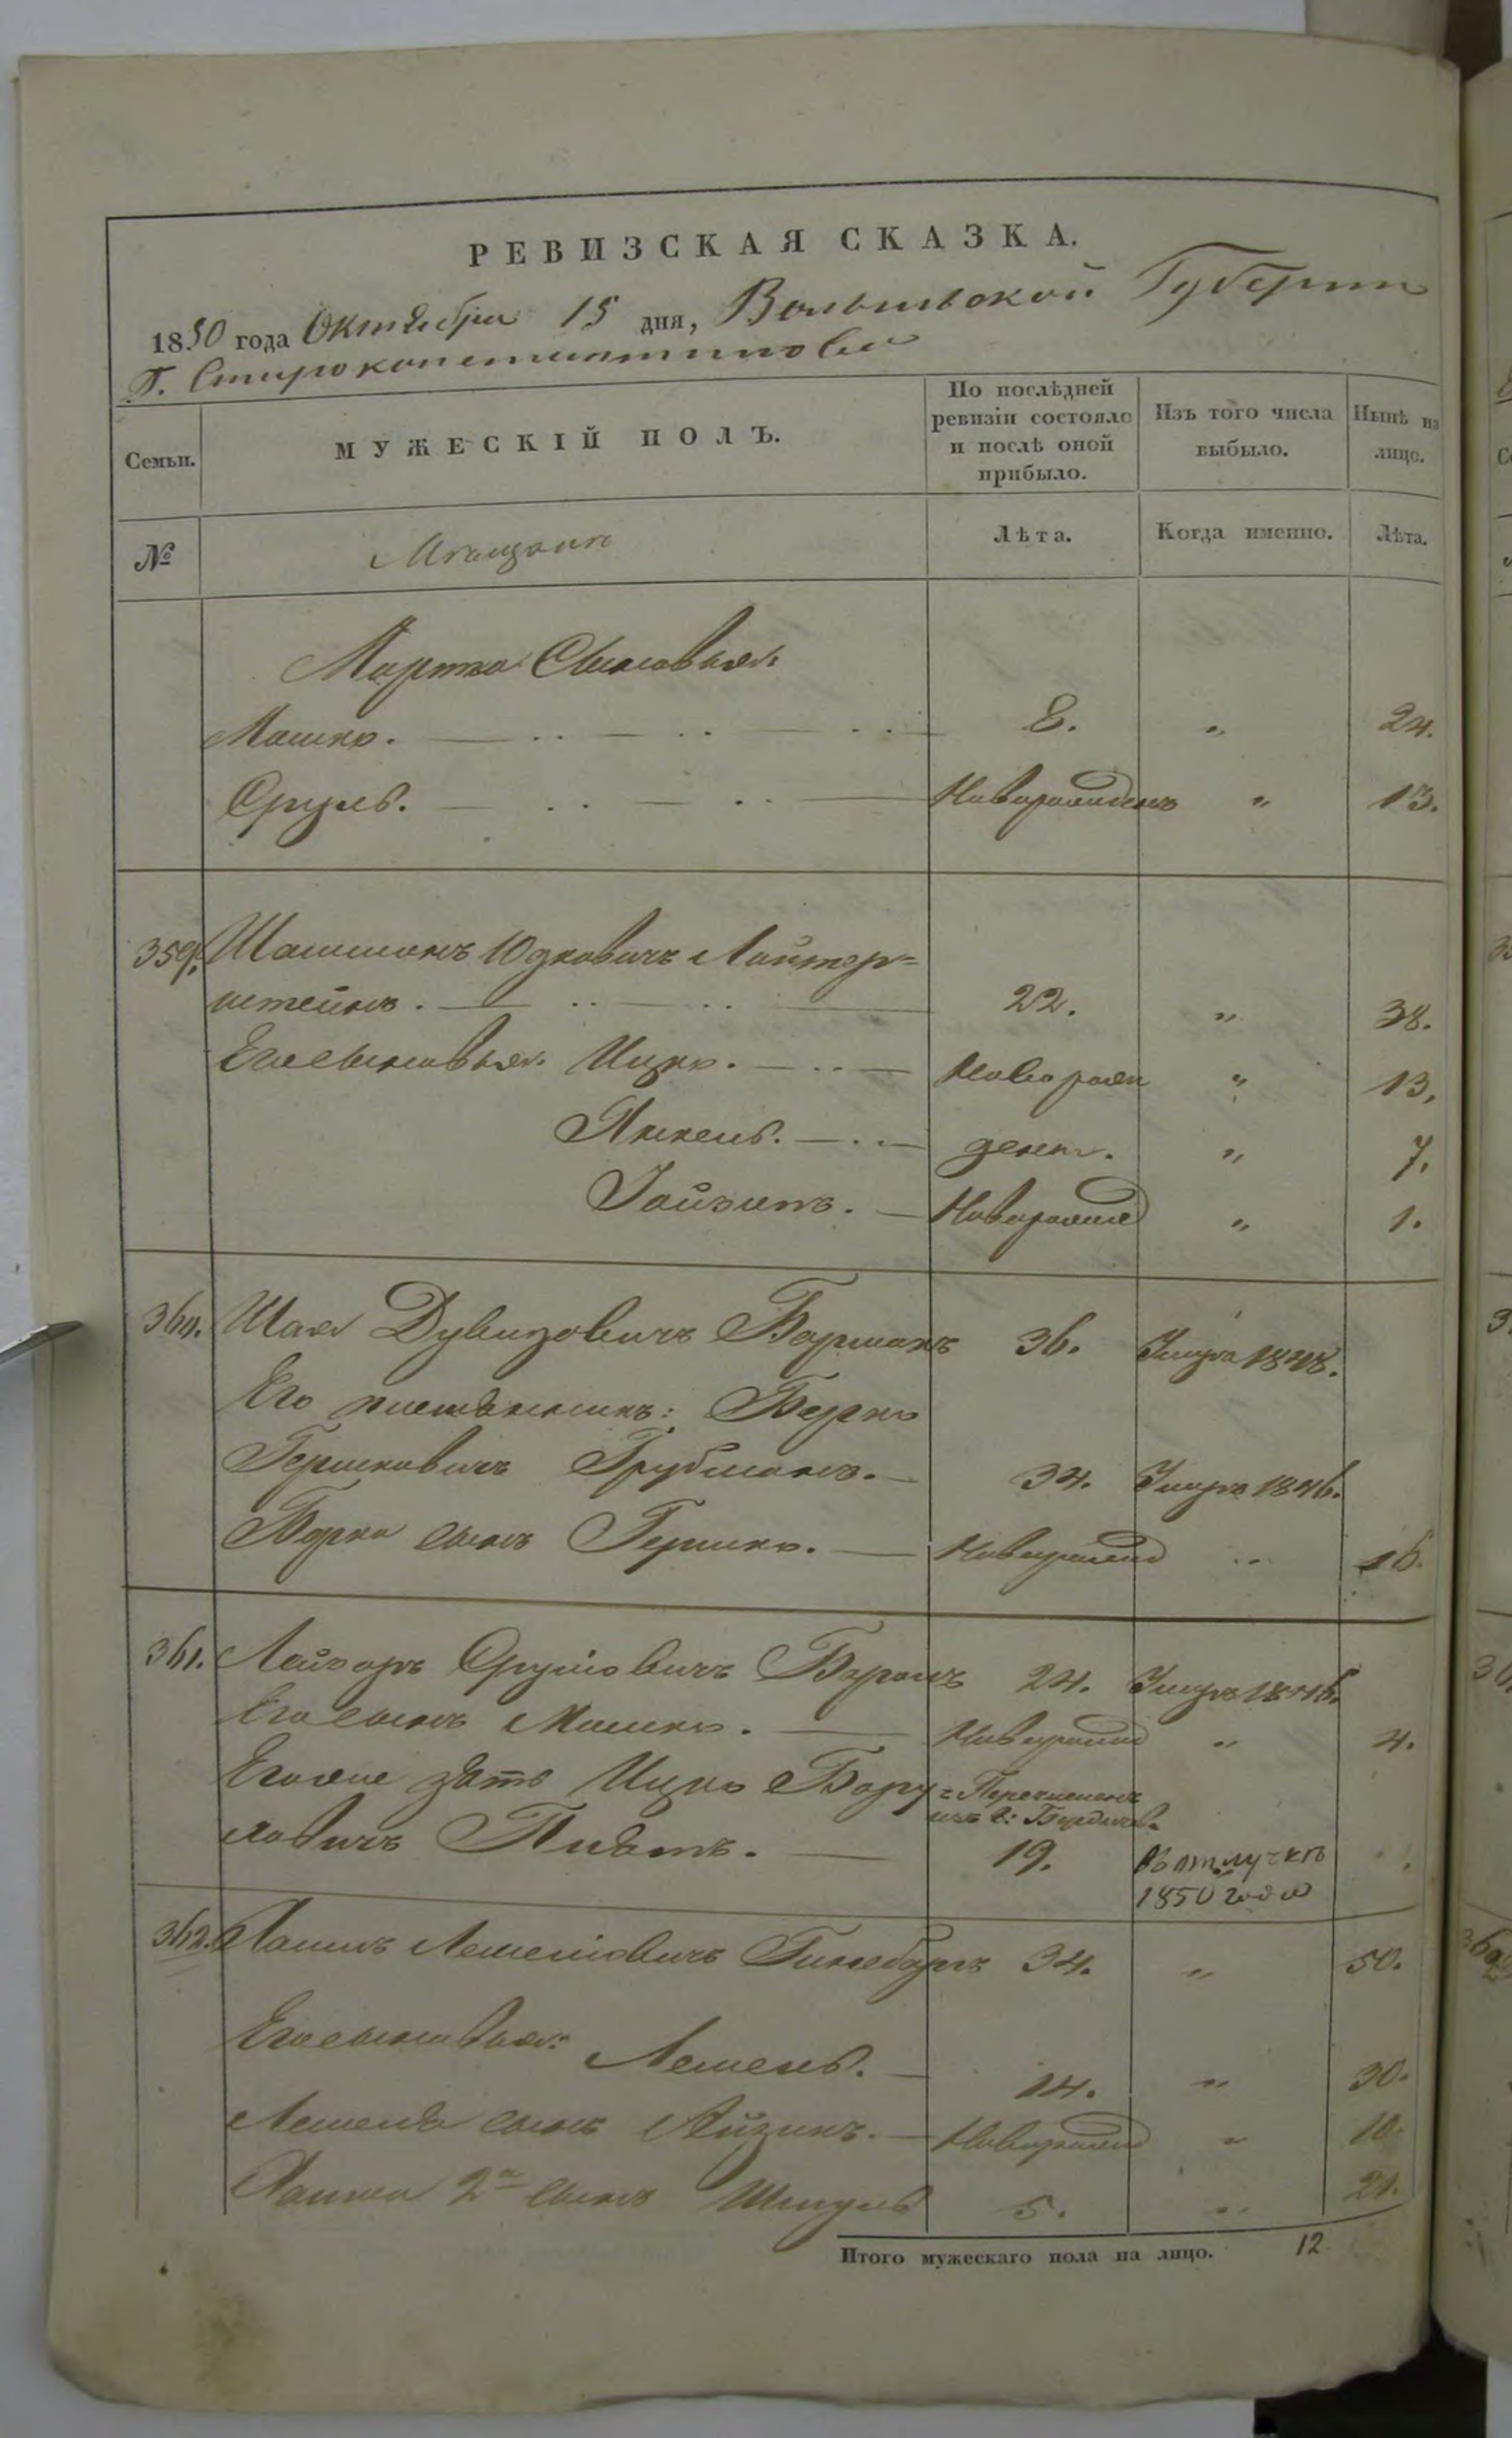 РЕВИЗСКАЯ СКАЗКА.
1850 года Октября 15 дня, Волынской Губернии
Г. Староконстантинова
Семьи. МУЖЕСКІЙ ПОЛЪ. По послѣдней ревизіи состояло и послѣ оной прибыло. Изъ того числа выбыло. Нынѣ на лицо.
№ Мѣщане Лѣта. Когда именно. Лѣта.
Сыновья:
Мошко. 8. " 24.
Сруль. Новорожденъ " 13.
359. Юдковичъ Лайтер=
штейнъ. 22. " 38.
Его сыновья: Ицко. Новорож " 13.
Янкель. дены. " 7.
Іойзипъ. Новорожд " 1.
360. Шая Дувидовичъ 36. Умеръ 1848.
Его племянникъ: Берко
Гершковичъ Грубманъ. 34. Умеръ 1846.
Берка сынъ Гершко. Новорожд " 16.
361. Лейзоръ Срулiовичъ 24. Умеръ 1846.
Его сынъ Мошко. Новорожд " 4.
Егоже зять Ицко Бору= Перечисленъ
изъ г: Бердичева
ховичъ 19. въ отлучкѣ
1850 года
362. Лейбовичъ 34. " 50.
Его сыновья: 14. " 30.
сынъ Айзикъ. Новорожд " 10.
2й сынъ Шмуль 5. " 21.
Итого мужескаго пола на лицо. 12